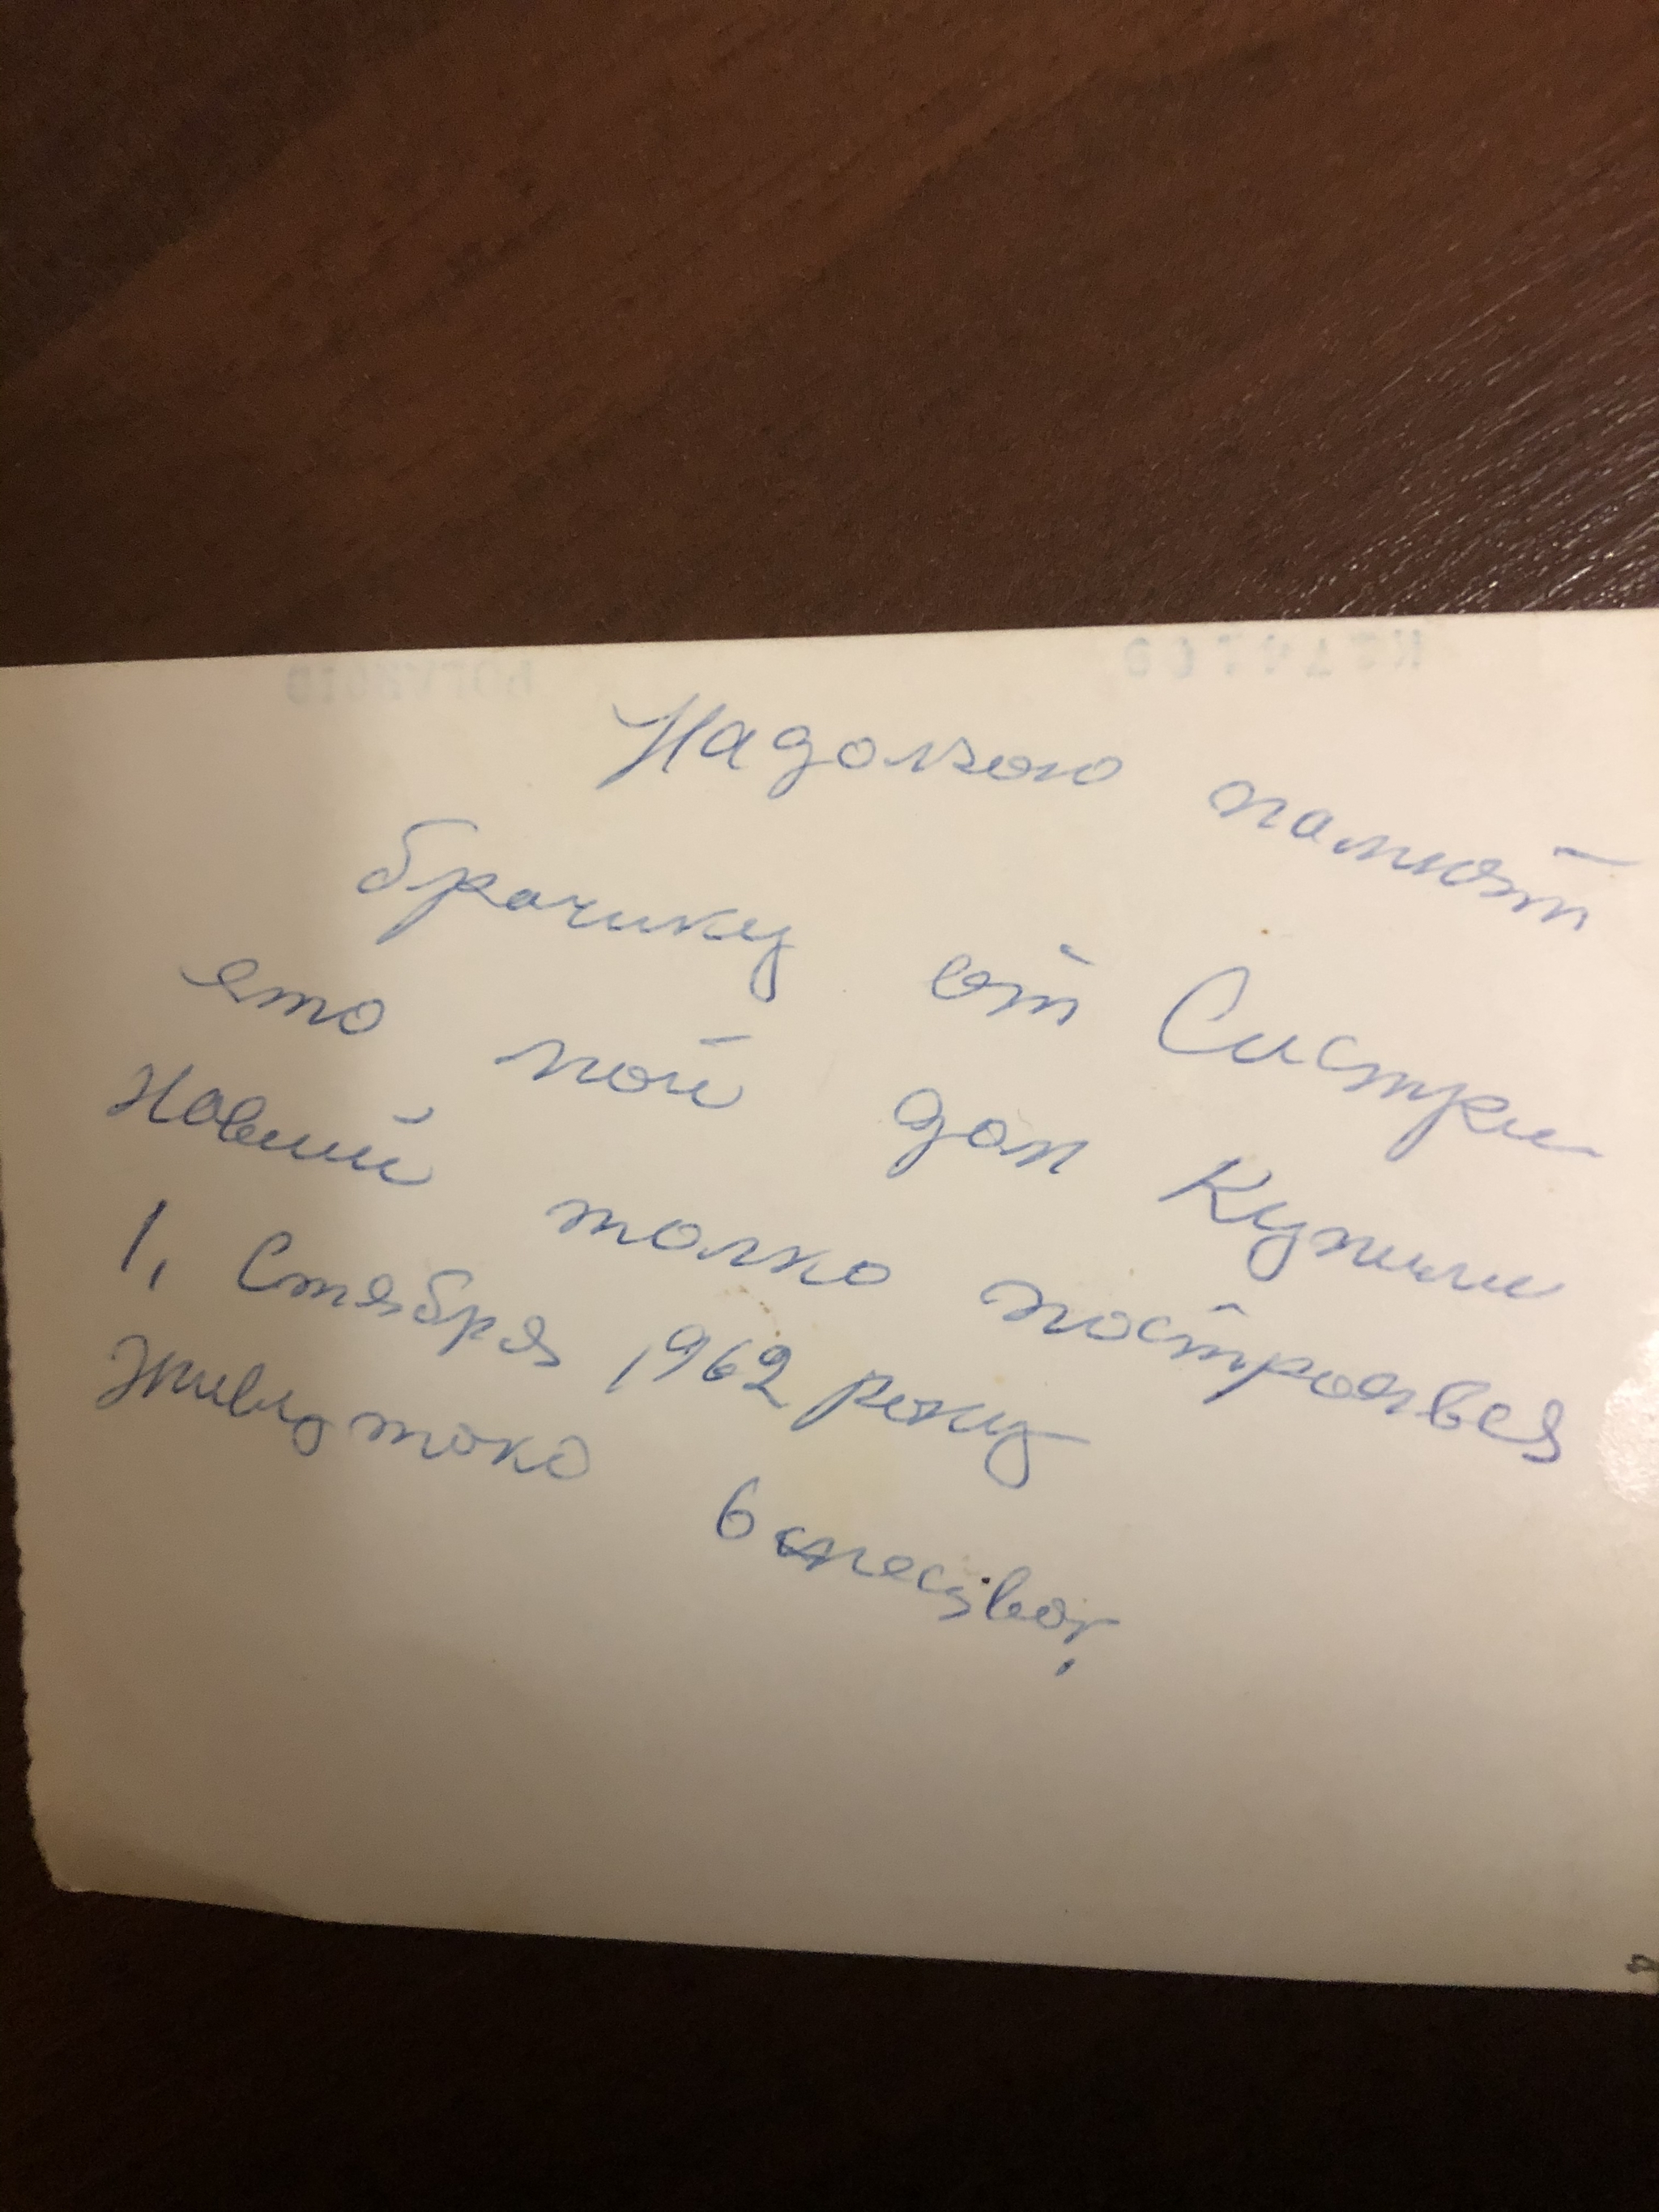 Надолгою памют
брачику от Систри
ето мой дом Купили
Новий толко построявся
1, Стября 1962 року
живу токо 6 месявог,